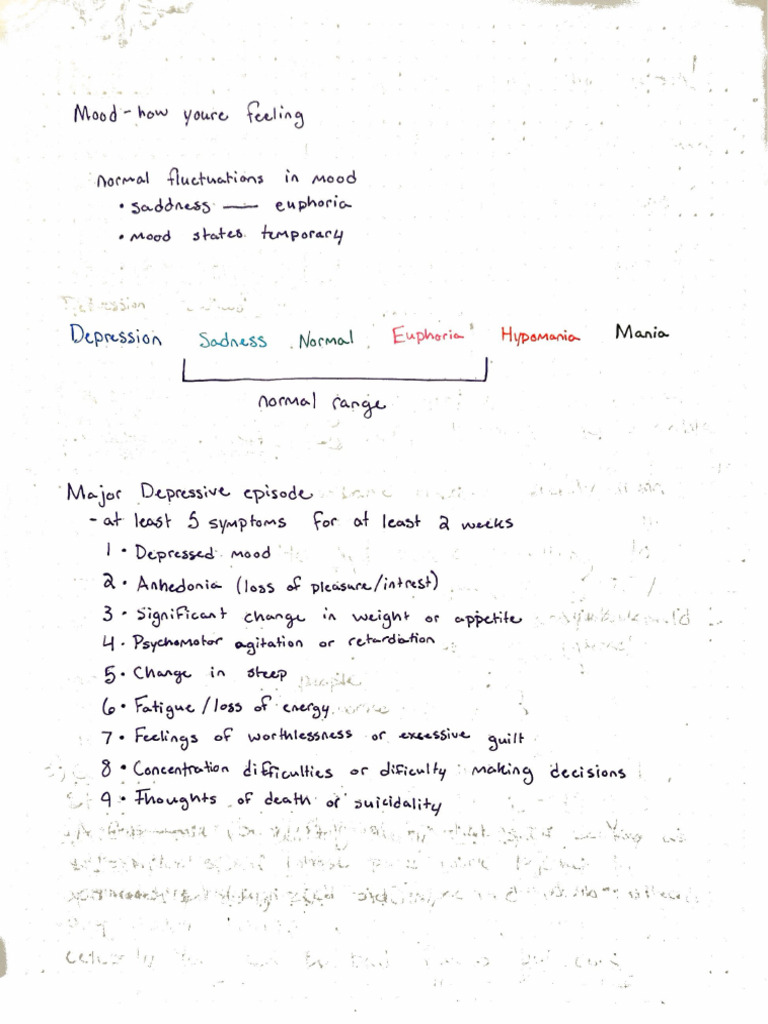 Mood - how youre feeling
normal fluctuations in mood
• saddness — euphoria
• mood states temporary
Depression Sadness Normal Euphoria Hypomania Mania
normal range
Major Depressive episode
- at least 5 symptoms for at least 2 weeks
1 • Depressed mood
2 • Anhedonia (loss of pleasure/intrest)
3 • Significant change in weight or appetite
4 • Psychomotor agitation or retardation
5 • Change in sleep
6 • Fatigue / loss of energy
7 • Feelings of worthlessness or excessive guilt
8 • Concentration difficulties or dificulty making decisions
9 • Thoughts of death or suicidality